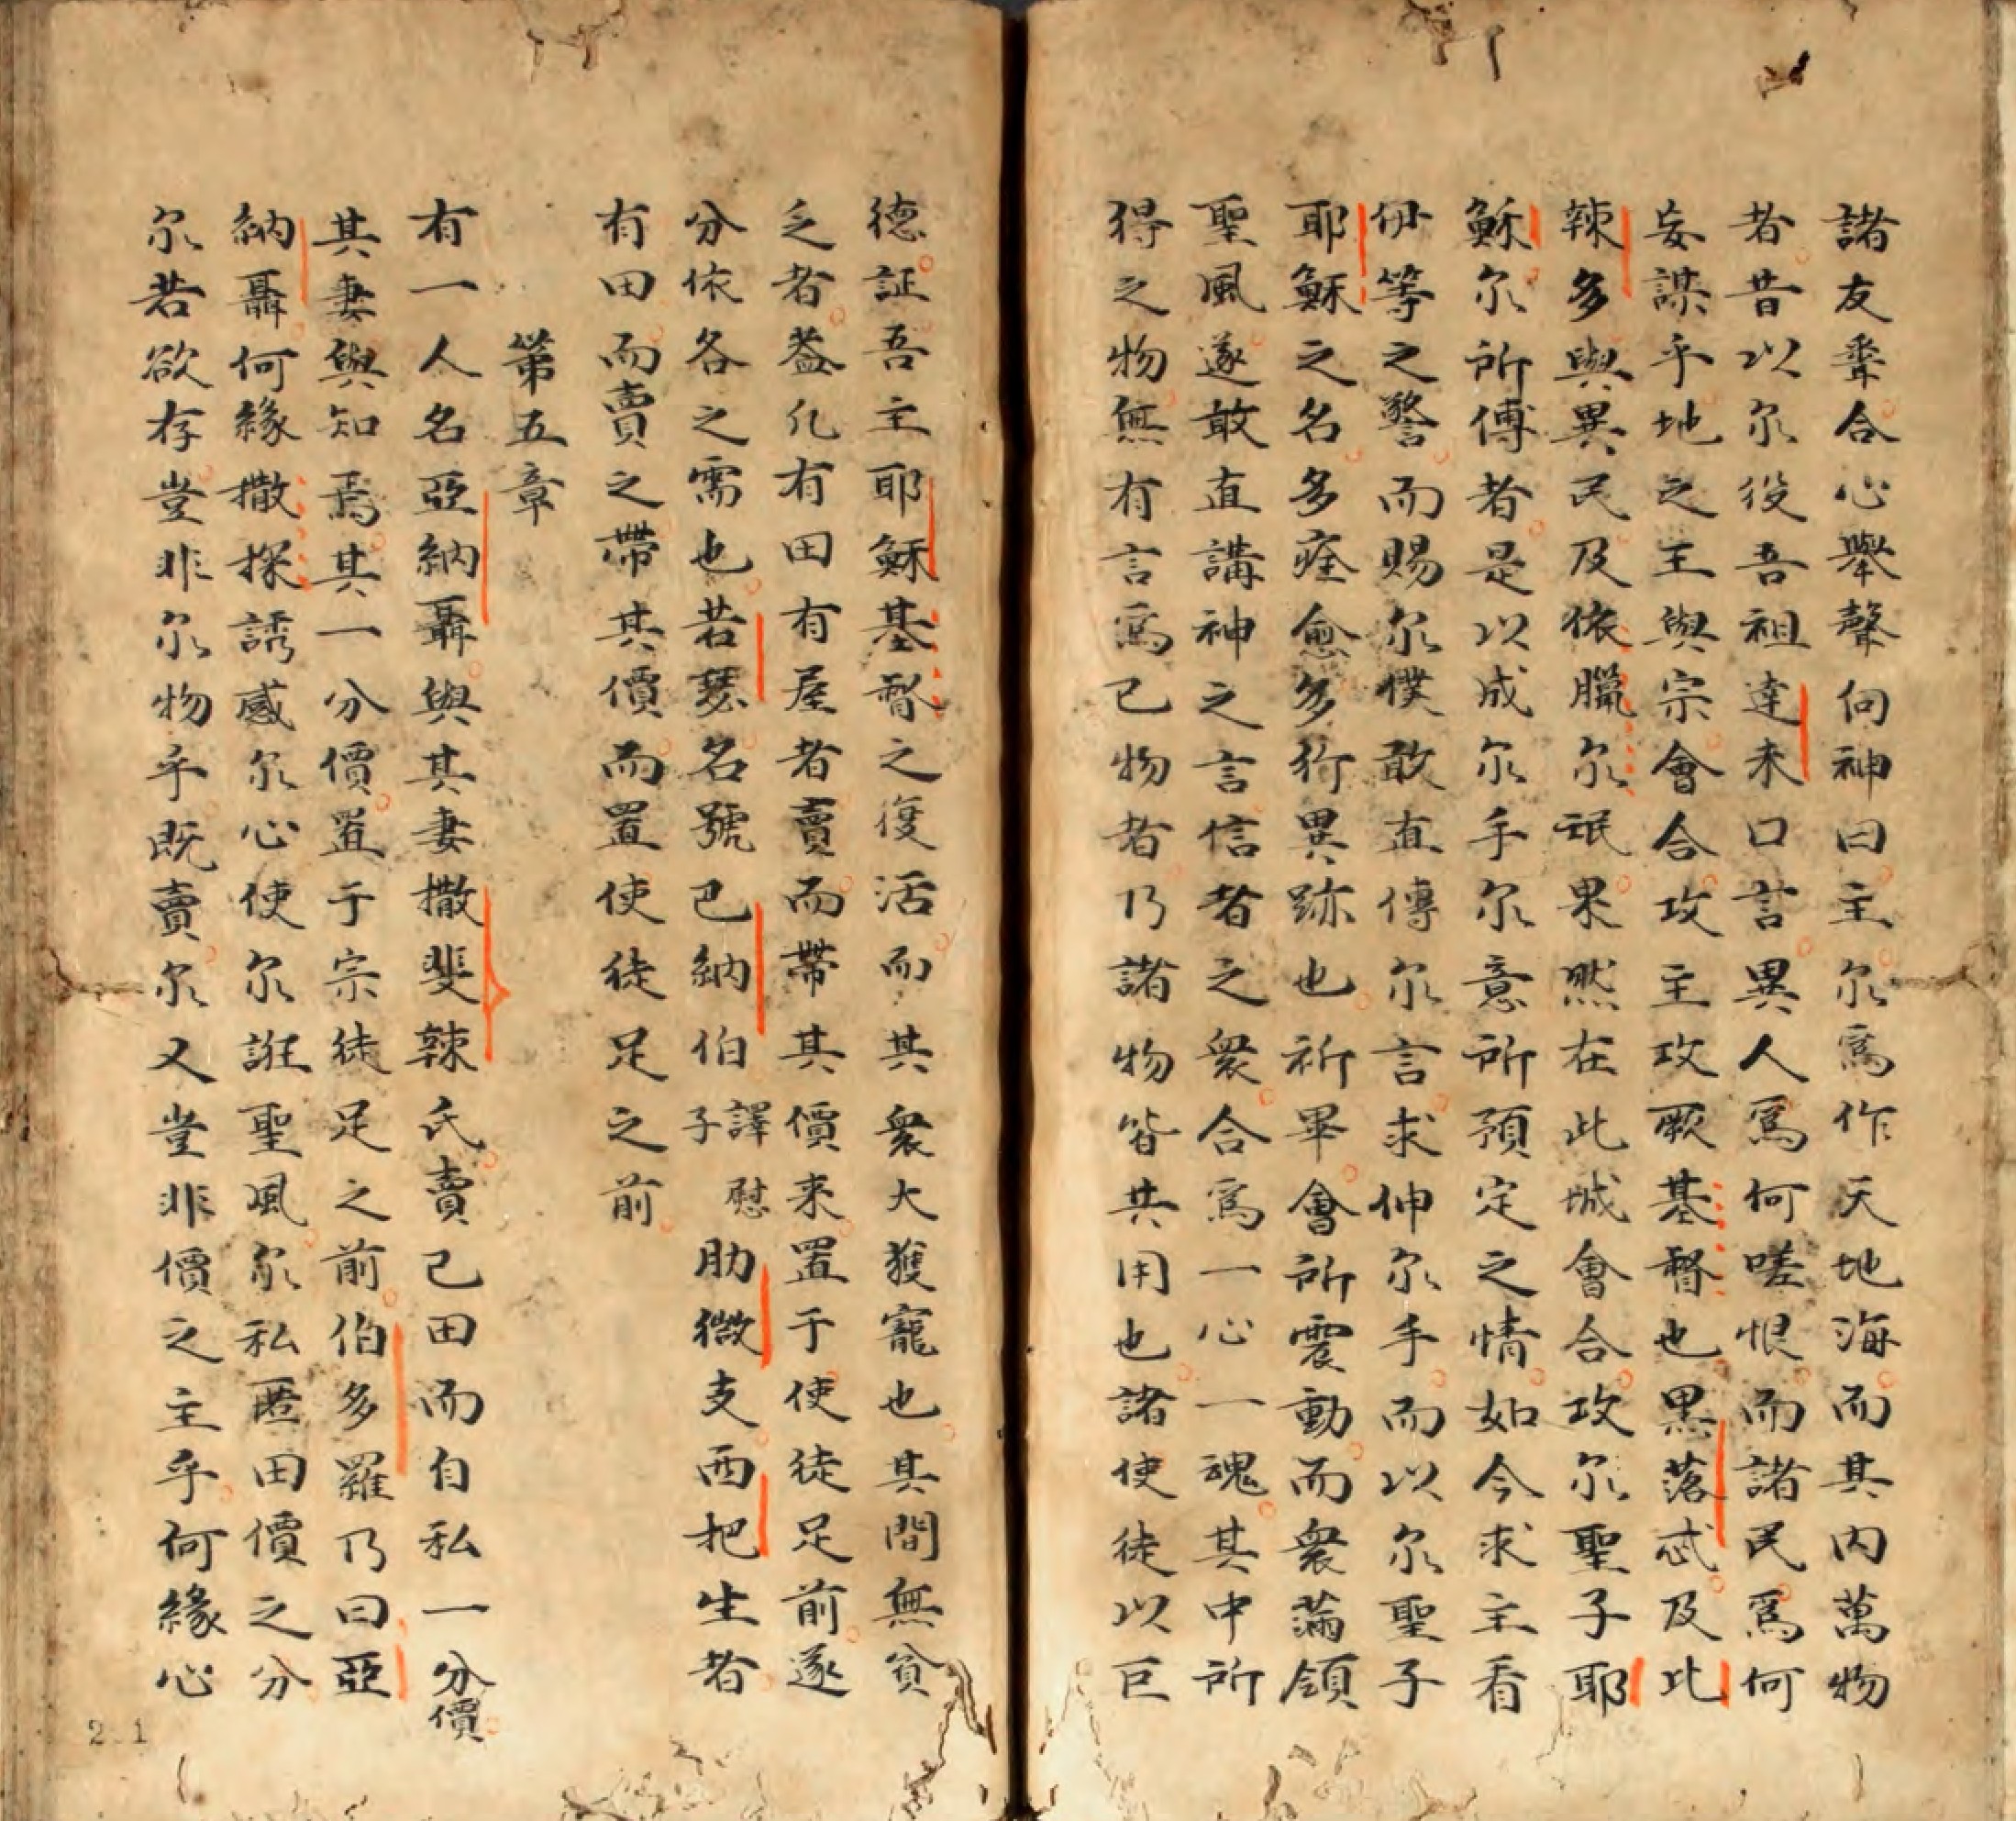 諸友聚合心舉聲向神曰主尔爲作天地海而其内萬物
者昔以尔役吾祖達未口言異人爲何嗟恨而諸民爲何
妄謀乎地之王與宗會合攻主攻厥基督也黒落忒及比
辣多與異民及依臘尔氓果然在此城會合攻尔聖子耶
穌尔所傅者是以成尔手尔意所預定之情如今求主看
伊等之警而賜尔僕敢直傳尔言求伸尔手而以尔聖子
耶穌之名多多痊愈多行異跡也祈畢會所震動而衆滿領
聖風遂敢直講神之言信者之衆合爲一心一魂其中所
得之物無有言爲已物者乃諸物皆共用也諸使徒以巨
德証吾主耶穌基督之復活而其衆大獲寵也其間無貧
乏者葢凡有田有屋者賣而帶其價来置于使徒足前遂
分依各之需也若瑟名號巴納伯譯慰子肋微支西把生者
有田而賣之帶其價而置使徒足之前
第五章
有一人名亞納聶與其妻撒斐辣氏賣己田而自私一分價
其妻與知焉其一分價置于宗徒足之前伯多羅乃曰亞
納聶何緣撒探誘感尔心使尔誑聖風尔私匿田價之分
尔若欲存豈非尔物乎既賣尔又豈非價之主乎何緣心
2.1